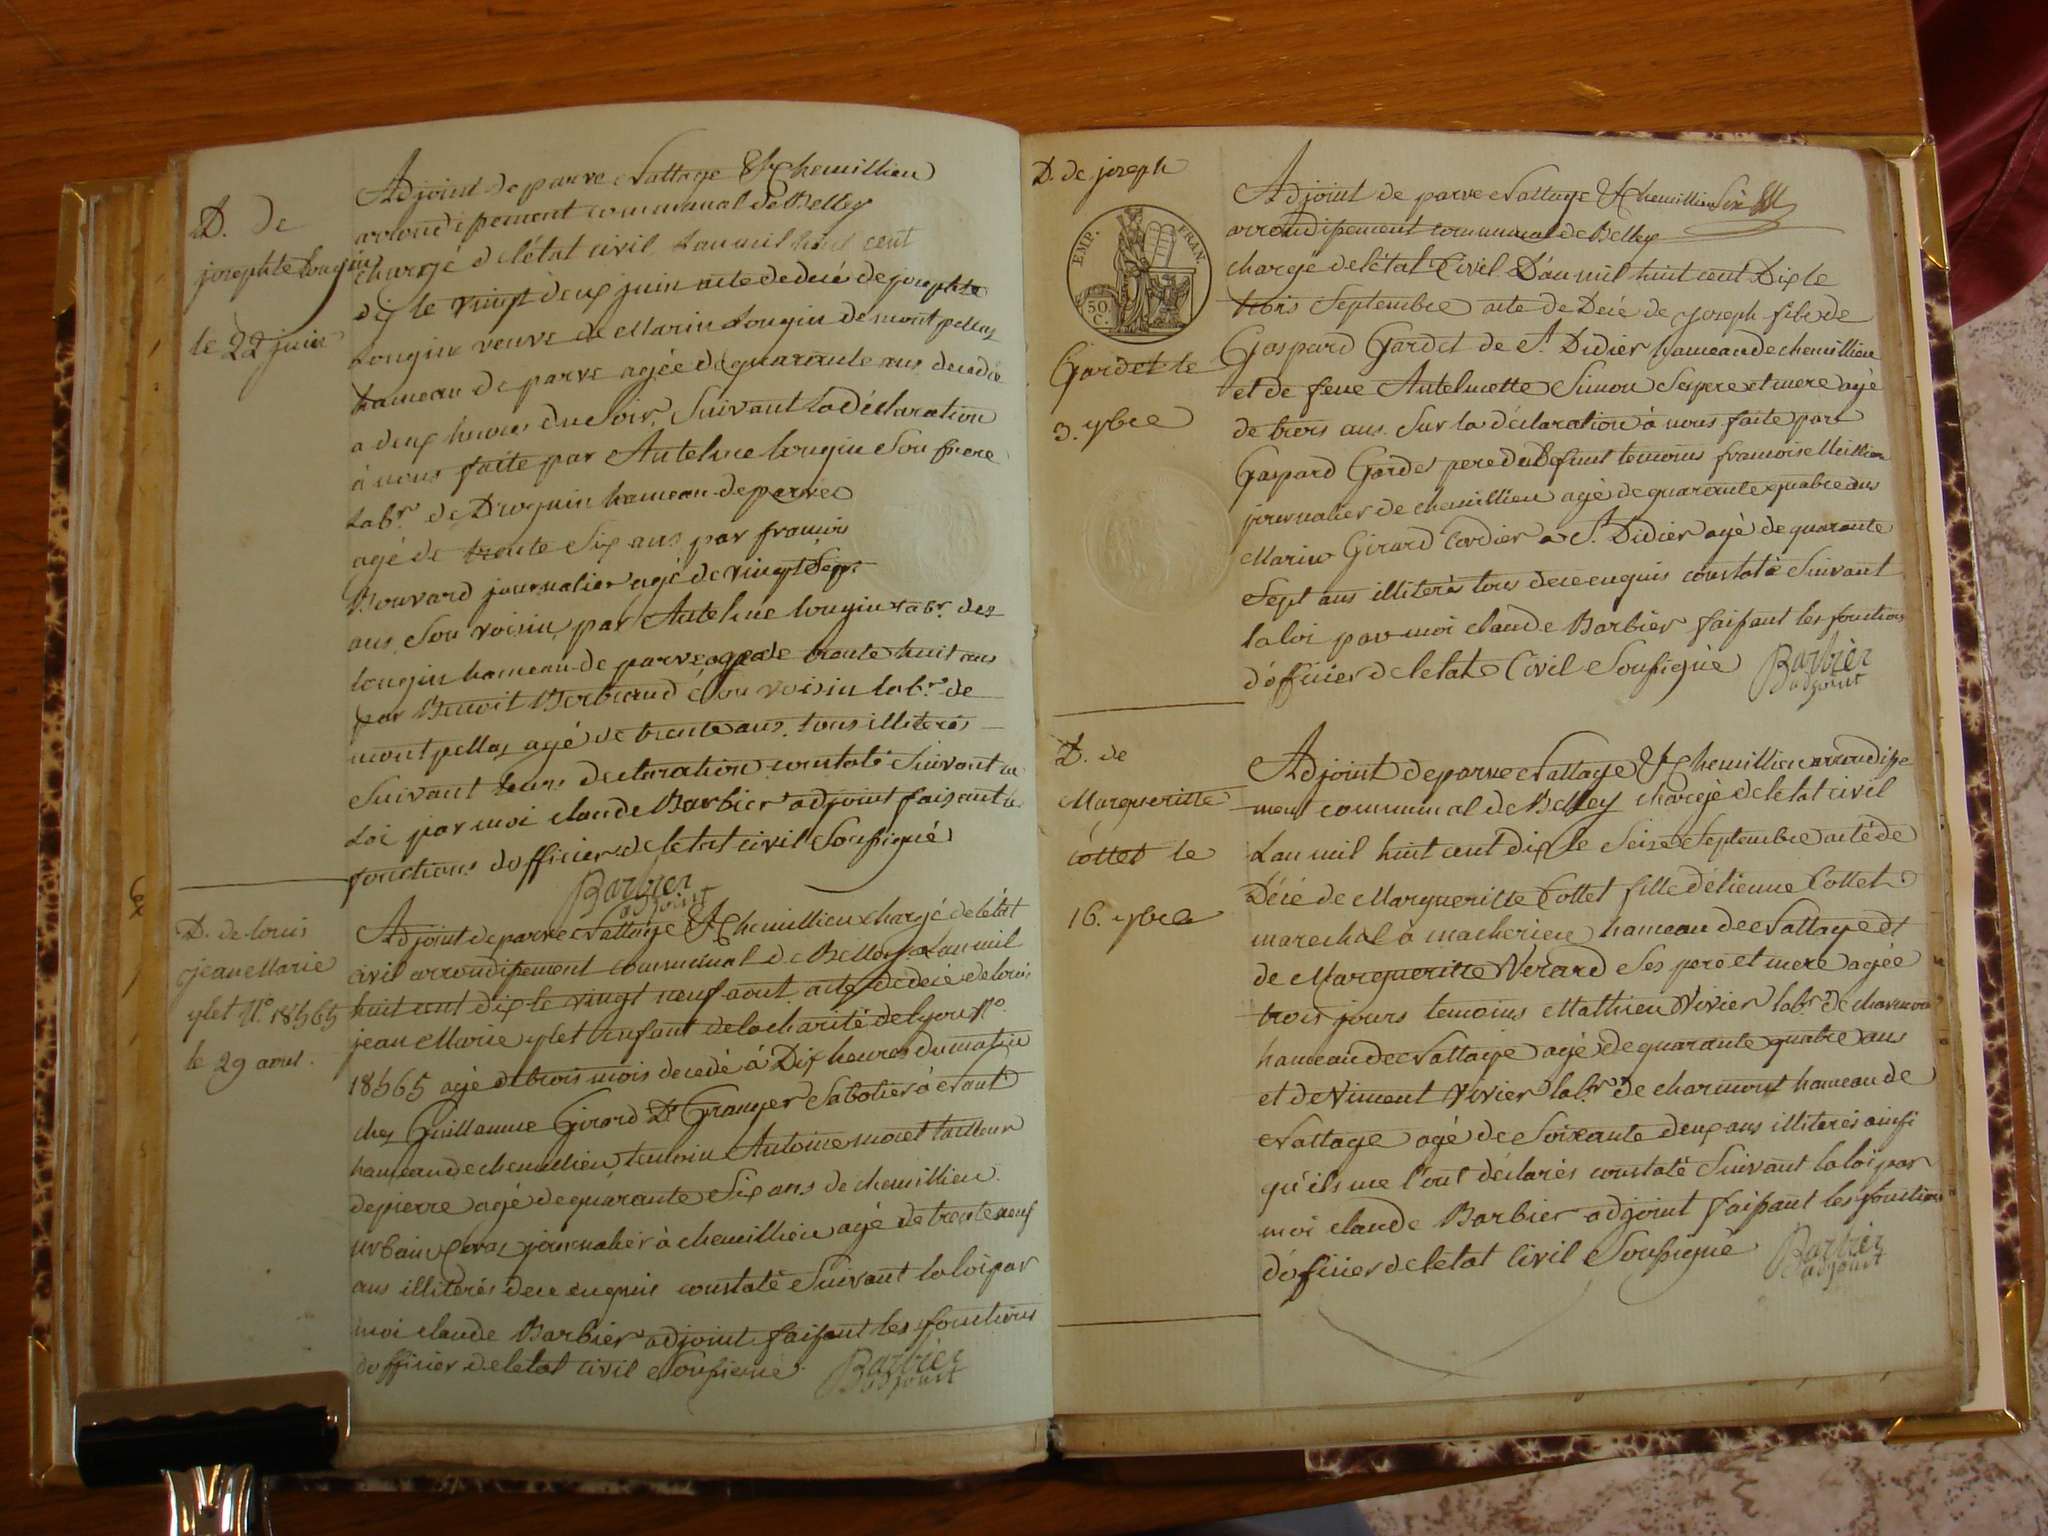 D. de
josephte Lougin
le 22 juin
Adjoint de parve Nattage & Chemillieu
arrondissement communal de Belley
chargé de létat civil Lan mil huit cent
dix le vingt deux juin acte de décé de josephte
Lougin veuve de Marin Lougin de montpellaz
hameau de parve agée de quarante ans décédée
a deux heures du Soir, Suivant la déclaration
à nous faite par Antelme Lougin Son frere
Labr. de hameau de parve
agé de trente Six ans par francois
Bouvard journalier agé de vingt Sept
ans Son voisin, par Antelme Lougin Labr. des
Lougin hameau de parve agé de trente huit ans
par Benoit Berthand Son voisin labr. de
montpellaz agé de trente ans. tous illiterés
Suivant leurs déclaration constaté Suivant la
Loi par moi claude Barbier adjoint faisant les
fonctions dofficier de letat civil Soussigné
Barbier
adjoint
D. de louis
jean Marie
ylet N.o 18565
le 29 aout.
Adjoint de parve Nattage & Chemillieu chargé de létat
civil arrondissement communal de Belley Lan mil
huit cent dix le vingt neuf aout acte de décé de louis
jean Marie ylet Enfant de la charité de lyon N.o
18565 agé de trois mois décedé à Dix heures du matin
chez Guillaume Girard Granger Sabotier à
hameau de chemillieu, temoin Antoine moret tailleur
de pierre agé de quarante Six ans de chemillieu
urbain journalier à chemillieu agé de trente neuf
ans illiterés de ce enquis constaté Suivant la loi par
moi claude Barbier adjoint faisant les fonctions
dofficier de letat civil Soussigné
Barbier
adjoint
D. de joseph
EMP. FRAN.
50
C.
Gardet le
3. 7bre
Adjoint de parve Nattage & Chemillieu Six
arrondissement communal de Belley
chargé de létat Civil. Lan mil huit cent Dix le
trois Septembre acte de Décé de joseph fils de
Gaspard Gardet de St. Didier hameau de chemillieu
et de feue Antelmette Simon Ses pere et mere agé
de trois ans. Sur la déclaration à nous faite par
Gaspard Gardet pere du Défunt temoins francois
journalier de chemillieu agé de quarante quatre ans
Marin Girard Cordier a St. Didier agé de quarante
Sept ans illiterés tous de ce enquis constaté Suivant
la loi par moi claude Barbier faisant les fonctions
d'officier de letat Civil Soussigné
Barbier
adjoint
D. de
Margueritte
Collet le
16. 7bre
Adjoint de parve Nattage & Chemillieu arrondisse
-ment communal de Belley chargé de letat civil
Lan mil huit cent dix le Seize Septembre acte de
Décé de Margueritte Collet fille d'étienne Collet
marechal à hameau de Nattage et
de Margueritte Verard Ses pere et mere agée
trois jours temoins Mathieu Vivier labr. de charmont
hameau de Nattage agé de quarante quatre ans
et de Vincent Vivier labr. de charmont hameau de
Nattage agé de Soixante deux ans illiterés ainsi
qu'ils me l'ont déclarés constaté Suivant la loi par
moi claude Barbier adjoint faisant les fonctions
d'officier de letat Civil Soussigné
Barbier
adjoint